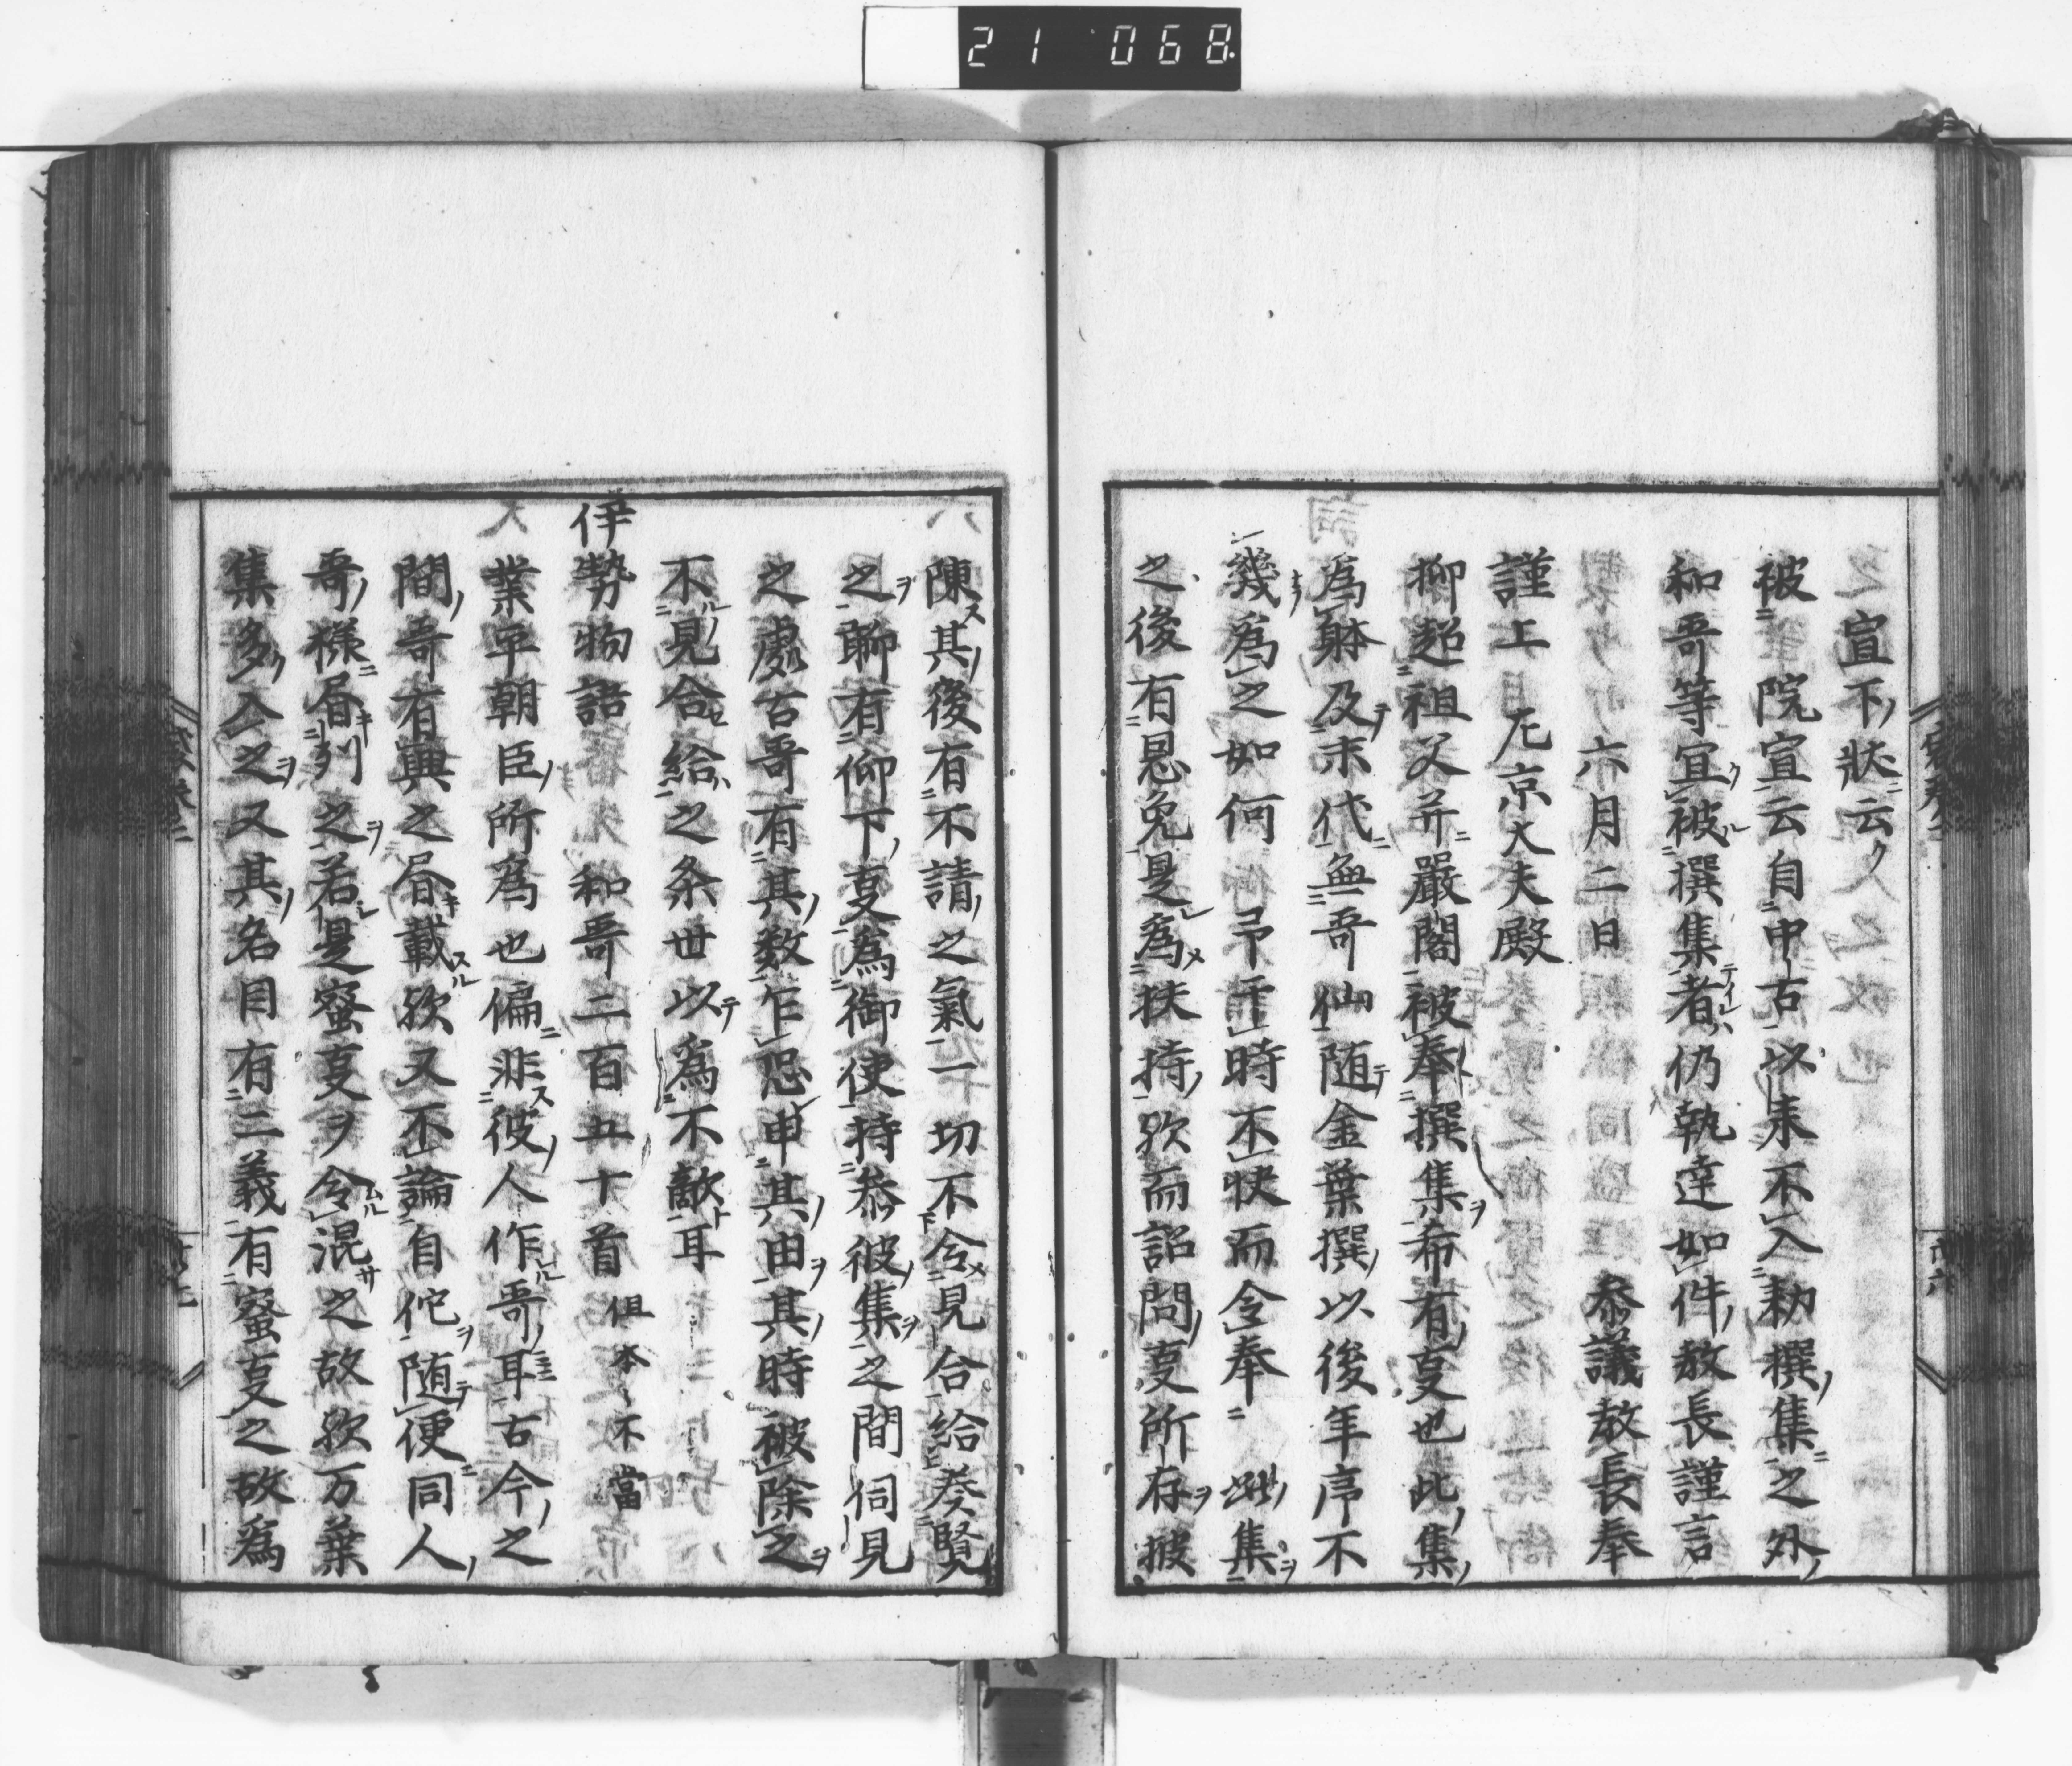 21 068
之宣下状云
被院宣云自中古以来不入勅撰集之外
和哥等宜被撰集者仍執達如件教長謹言
六月二日 参議教長奉
謹上 左京大夫殿
抑超祖父并嚴閤被奉撰集希有叓也此集
為躰及末代無哥仙随金葉撰以後年序不
幾為之如何 予于時丕状而令奉 此集
之後有恩免是為扶持欤而詔問叓所存披
陳其後有不請之氣一切不令見合給奏覧
之聊有仰下叓為御使持参彼集之間伺見
之處古哥有其数乍恐申其由其時被除之
不見合給之条世以為不敵耳
伊勢物語 和哥二百五十首 但本〻不當
業平朝臣所為也偏非彼人作哥耳古今之
間哥有興之昏載欤又丕論自佗随便同人
哥様昏列之若是蜜叓ヲ令混之故欤万葉
集多入之又其名目有二義有蜜叓之故為